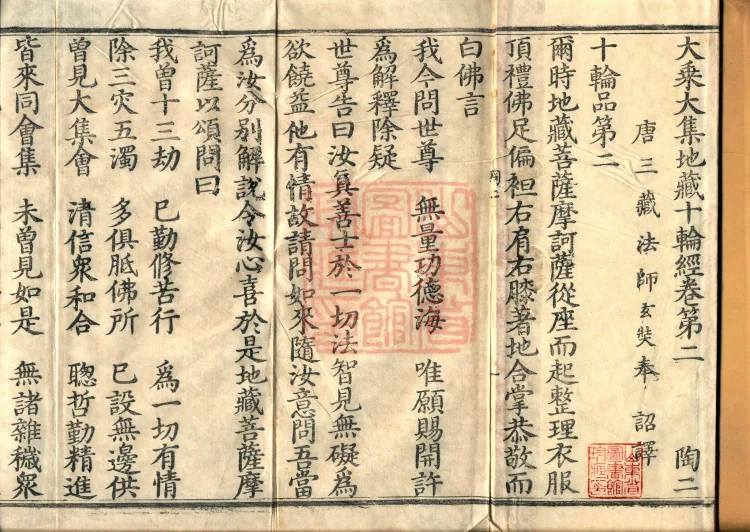 大乘大集地藏十輪經卷第二 陶二
唐三藏法師玄奘奉 詔譯
十輪品第二
爾時地藏菩薩摩訶薩從座而起整理衣服
頂禮佛足偏袒右肩右膝著地合掌恭敬而
白佛言
我今問世尊 無量功德海 唯願賜開許
為解釋除疑
世尊告曰汝真善士於一切法智見無礙為
欲饒益他有情故請問如來隨汝意問吾當
為汝分別解說令汝心喜於是地藏菩薩摩
訶薩以頌問曰
我曾十三劫 已勤修苦行 為一切有情
除三灾五濁 多俱胝佛所 已設無邊供
曾見大集會 清信衆和合 聰哲勤精進
皆來同會集 未曾見如是 無諸雜穢衆
陶二
山東省
圖書館